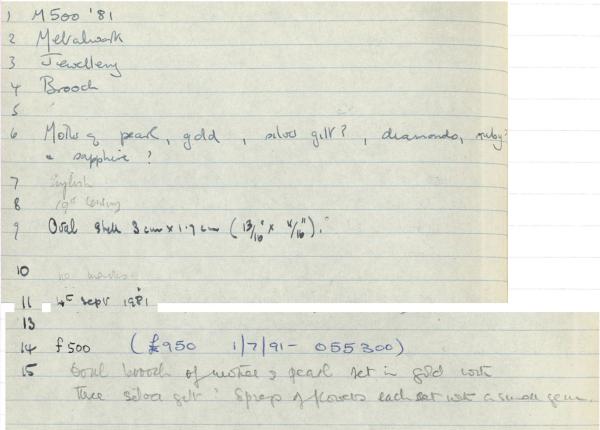 1 M500 '81
2 Metalwork
3 Jewellery
4 Brooch
5
6 Mother of pearl, gold, silver gilt?, diamonds, ruby?
& sapphire?
7 English
8 19th Century
9 Oval shell 3 cm x 1.7 cm (13/16" x 11/16").
10 no marks
11 4th Sept 1981
13
14 £500 (£950 1/7/91 - 055300)
15 Oval brooch of mother of pearl set in gold with
three silver gilt? Sprays of flowers each set with a small gem.